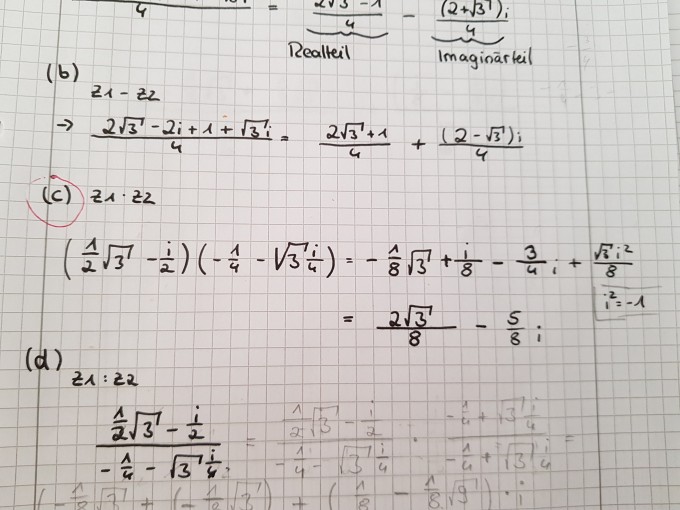 4 = 2√3 - 1 / 4 - (2+√3)i / 4
Realteil Imaginärteil
(b)
z1 - z2
→ 2√3 - 2i + 1 + √3i / 4 = 2√3 + 1 / 4 + (2 - √3)i / 4
(c) z1 · z2
(1/2 √3 - i/2)(-1/4 - √3 i/4) = -1/8 √3 + i/8 - 3/4 i + √3 i² / 8
i² = -1
= 2√3 / 8 - 5/8 i
(d)
z1 : z2
1/2 √3 - i/2 / -1/4 - √3 i/4 = 1/2 √3 - i/2 / -1/4 - √3 i/4 · -1/4 + √3 i/4 / -1/4 + √3 i/4 =
(-1/8 √3 + (-1/8 √3) + (1/8 - 1/8 √9) · i